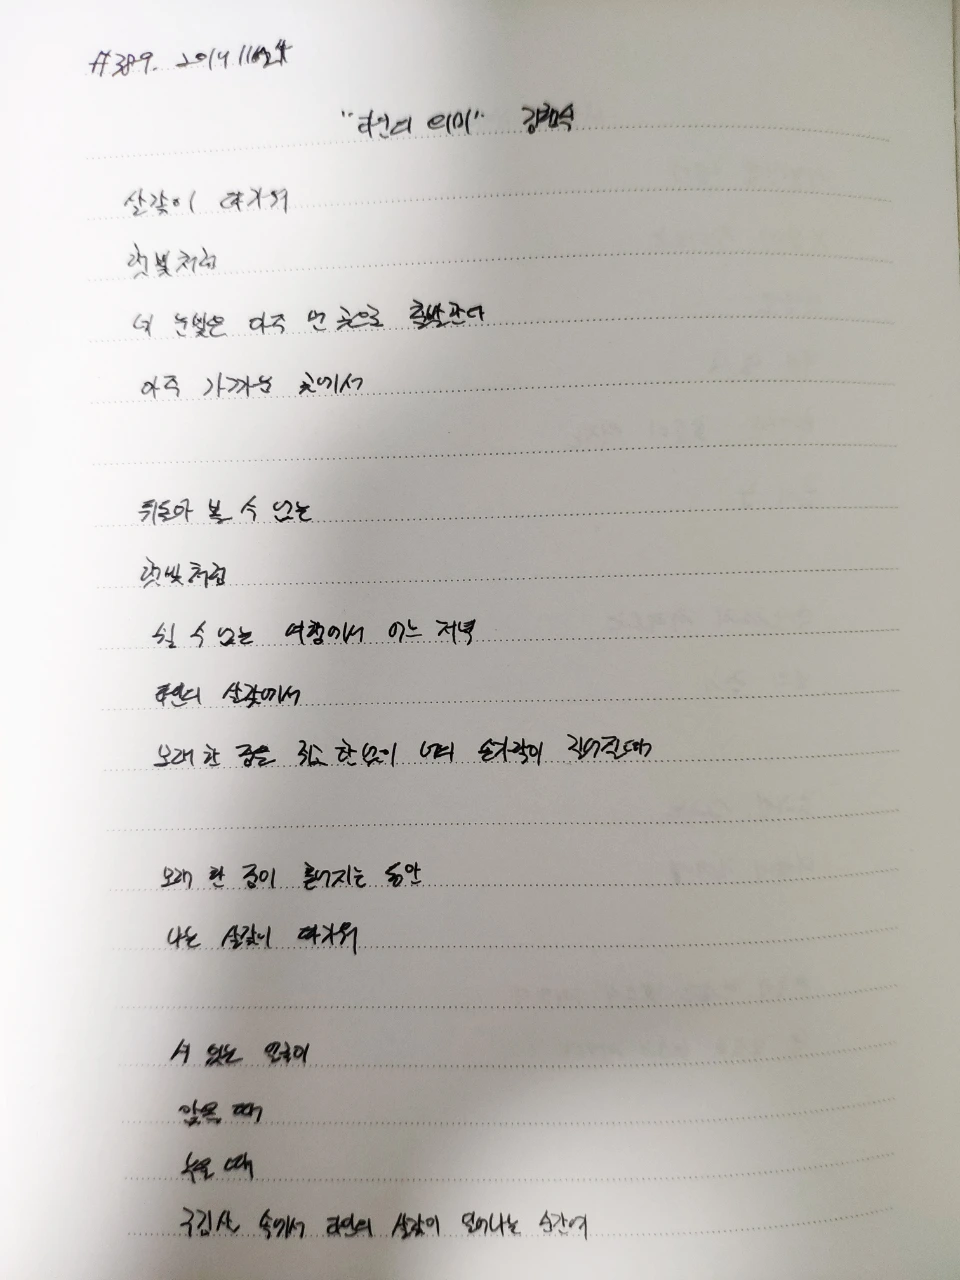 #389. 2019 11
"타인의 의미" 김행숙
살갗이 따가워
햇빛처럼
네 눈빛은 아주 먼 곳으로 출발한다
아주 가까운 곳에서
뒤돌아 볼 수 없는
햇빛처럼
쉴 수 없는 여행에서 어느 저녁
타인의 살갗에서
모래 한 줌을 쥐고 한없이 너의 손가락이 길어질 때
모래 한 줌이 흩어지는 동안
나는 살갗이 따가워
서 있는 얼굴이
앉을 때
누울 때
구김살 속에서 타인의 살갗이 일어나는 순간에